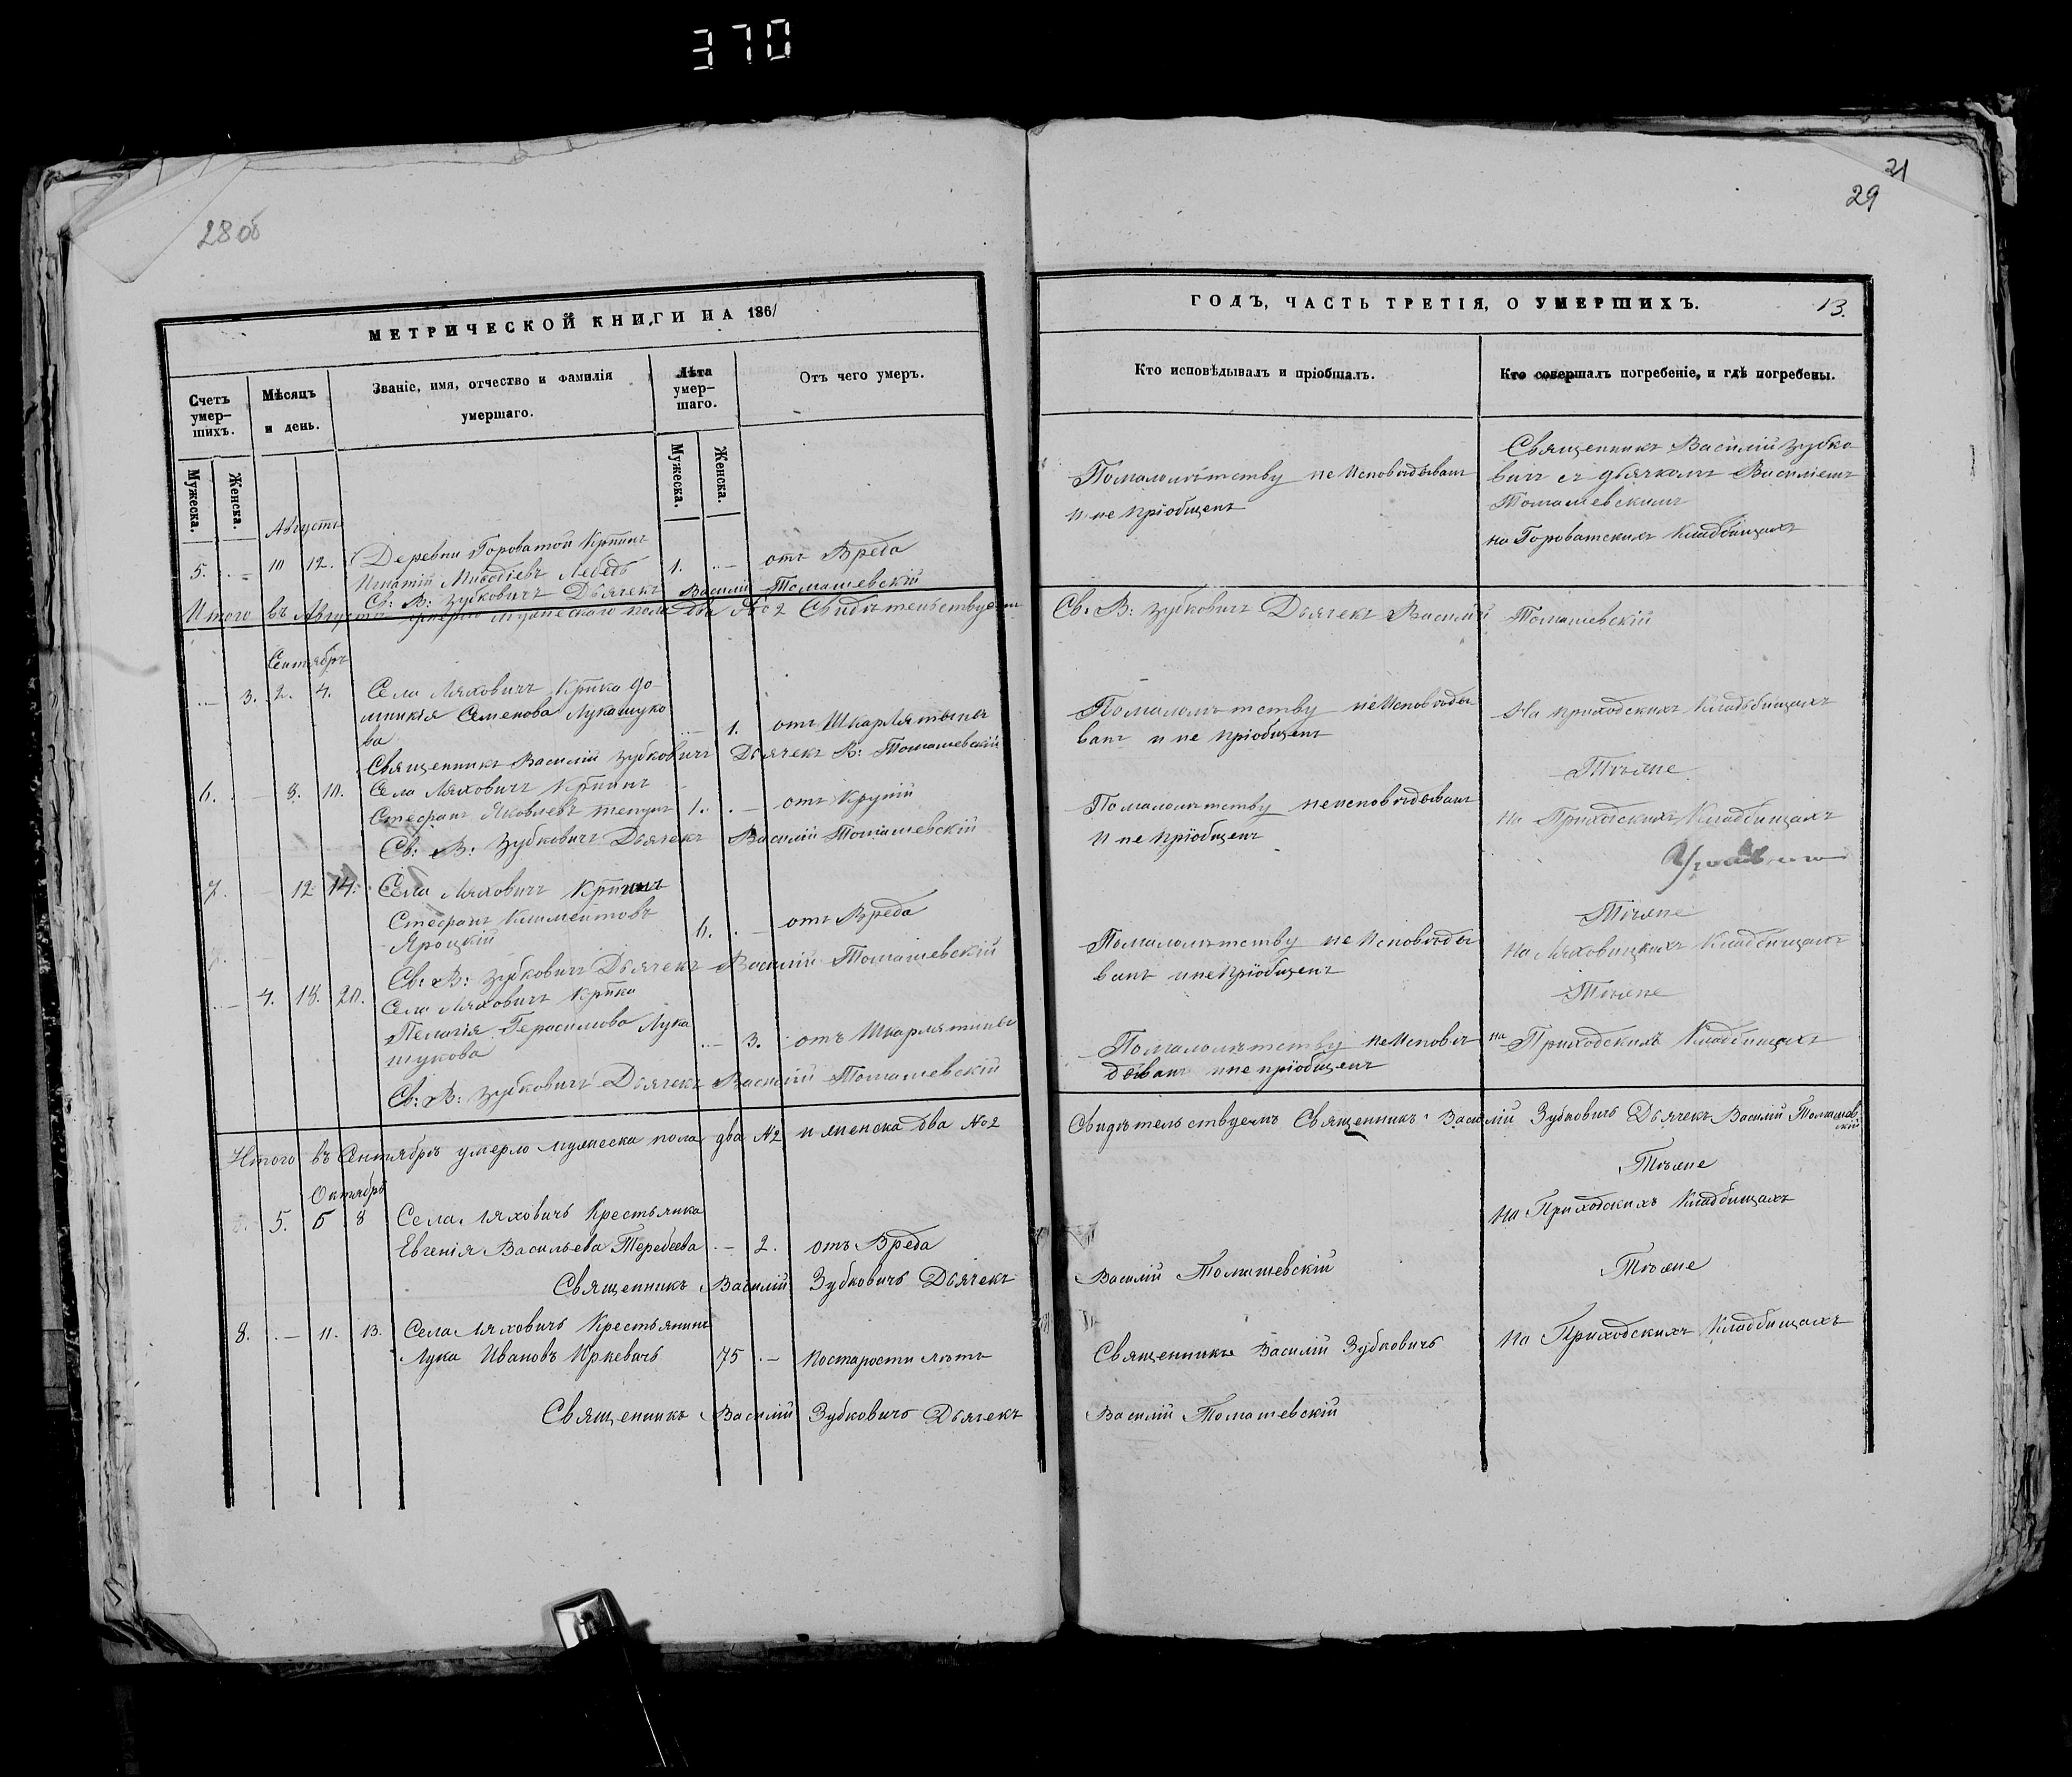 370
28 об
МЕТРИЧЕСКОЙ КНИГИ НА 1861
Счетъ умер-
шихъ.
Мѣсяцъ
и день.
Званіе, имя, отчество и фамилія
умершаго.
Лѣта
умер-
шаго.
Отъ чего умеръ.
Мужеска.
Женска.
Мужеска.
Женска.
Августъ
5. 10 12. Деревни Гороватой Крпнинъ
Лебедь 1. отъ Вреда
Св: В: Зубковичъ Дьячекъ Василій Томашевскій
Итого въ Августѣ умерло мужескаго пола два №2 Свидѣтельствуемъ
Сентябръ
3. 2. 4. Села Ляховичъ Крпнка До-
мникія Семенова Лукашуко
ва 1. отъ Шкарлятыны
Священникъ Василій Зубковичъ Дьячекъ В: Томашевскій
6. 8. 10. Села Ляховичъ Крпнинъ
Стефанъ Яковлевъ 1. отъ Крупій
Св: В: Зубковичъ Дьячекъ Василій Томашевскій
7. 12 14. Села Ляховичъ Крпнинъ
Стефанъ Климентовъ
Яроцкій 6. отъ Вреда
Св: В: Зубковичъ Дьячекъ Василій Томашевскій
4. 18. 20. Села Ляховичъ Крпнка
Пелагія Герасимова Лука
шукова 3. отъ Шкарлятины
Св: В: Зубковичъ Дьячекъ Василій Томашевскій
Итого въ Сентябрѣ умерло мужеска пола два №2 и женска два №2
Октябрь
5. 6 8 Села Ляховичъ Крестьянка
Евгенія Васильева Теребеева 2. отъ Вреда
Священникъ Василій Зубковичъ Дьячекъ
8. 11. 13. Села Ляховичъ Крестьянинъ
Лука Ивановъ Юркевичъ 75 по старости лѣтъ
Священникъ Василій Зубковичъ Дьячекъ
21
29
ГОДЪ, ЧАСТЬ ТРЕТІЯ, О УМЕРШИХЪ. 13.
Кто исповѣдывалъ и пріобщалъ.
Кто совершалъ погребеніе, и гдѣ погребены.
Помалолѣтству не Исповѣдыванъ
и не пріобщенъ
Священникъ Василій Зубко-
вичъ съ дьячкомъ Василіемъ
Томашевскимъ
на Гороватскихъ Кладбищахъ
Св. В: Зубковичъ Дьячекъ Василій Томашевскій
Помалолѣтству не Исповѣды
ванъ и не пріобщенъ
На приходскихъ Кладьбищахъ
Тѣже
Помалолѣтству неисповѣдыванъ
и не пріобщенъ
на Приходскихъ Кладбищахъ
Тѣже
Помалолѣтству не Исповѣды
ванъ и непріобщенъ
на Ляховицкихъ Кладбищахъ
Тѣже
Помалолѣтству не Исповѣ
дыванъ и не пріобщенъ
на Приходскихъ Кладбищахъ
Свидѣтельствуемъ Священникъ Василій Зубковичъ Дьячекъ Василій Томашев
скій
Тѣже
на Приходскихъ Кладбищахъ
Василій Томашевскій
Тѣже
Священникъ Василій Зубковичъ
на Приходскихъ Кладбищахъ
Василій Томашевскій